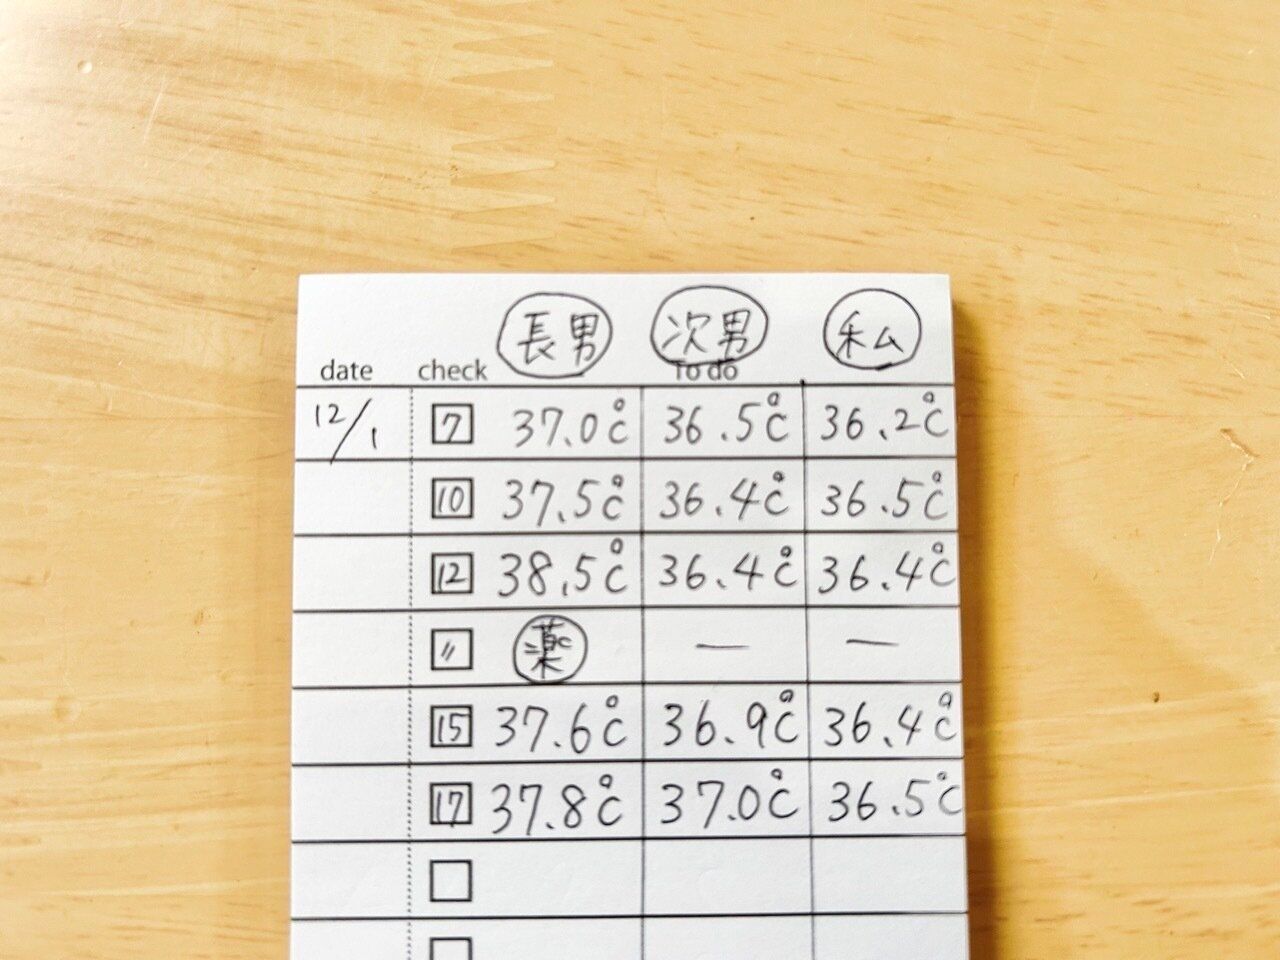 長男 次男 私
date check To do
12/1 7 37.0℃ 36.5℃ 36.2℃
10 37.5℃ 36.4℃ 36.5℃
12 38.5℃ 36.4℃ 36.4℃
〃 薬 — —
15 37.6℃ 36.9℃ 36.4℃
17 37.8℃ 37.0℃ 36.5℃